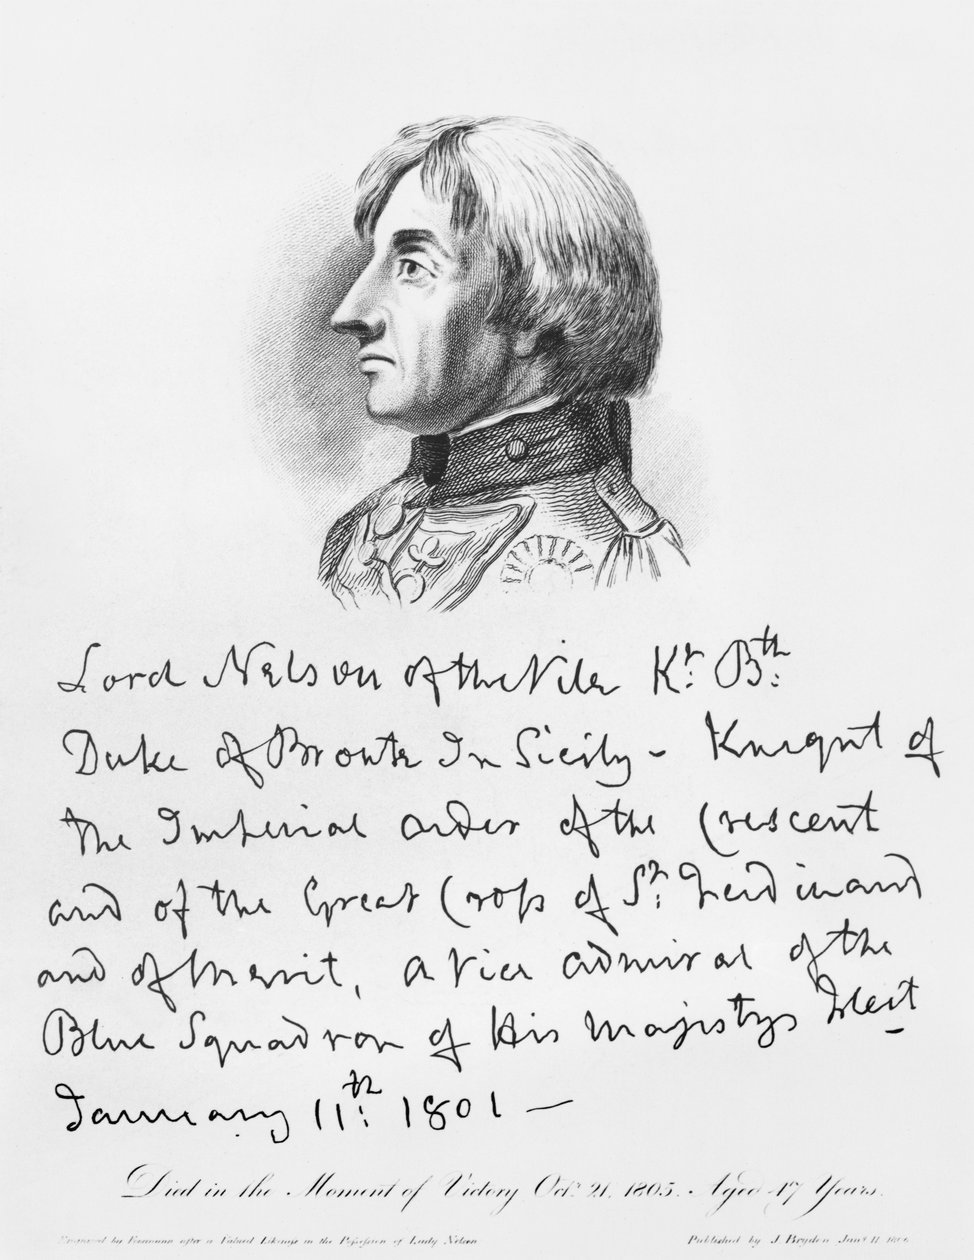 Lord Nelson of the Nile K.r B.th
Duke of Bronte In Sicily - Knight of
the Imperial order of the Crescent
and of the Great Cross of S.t Ferdinand
and of Merit, a Vice admiral of the
Blue Squadron of His Majestys Fleet
January 11.th 1801 —
Died in the Moment of Victory Oct.r 21, 1805. Aged 47 Years.
Engraved by after a Valued Likeness in the Possession of Lady Nelson
Published by J. Brydon Jan.y 11 1806